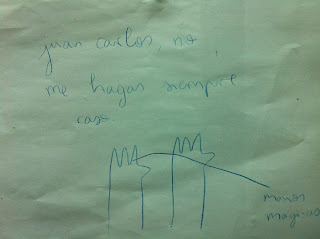 juan carlos, no
me hagas siempre
caso
manos
magicas